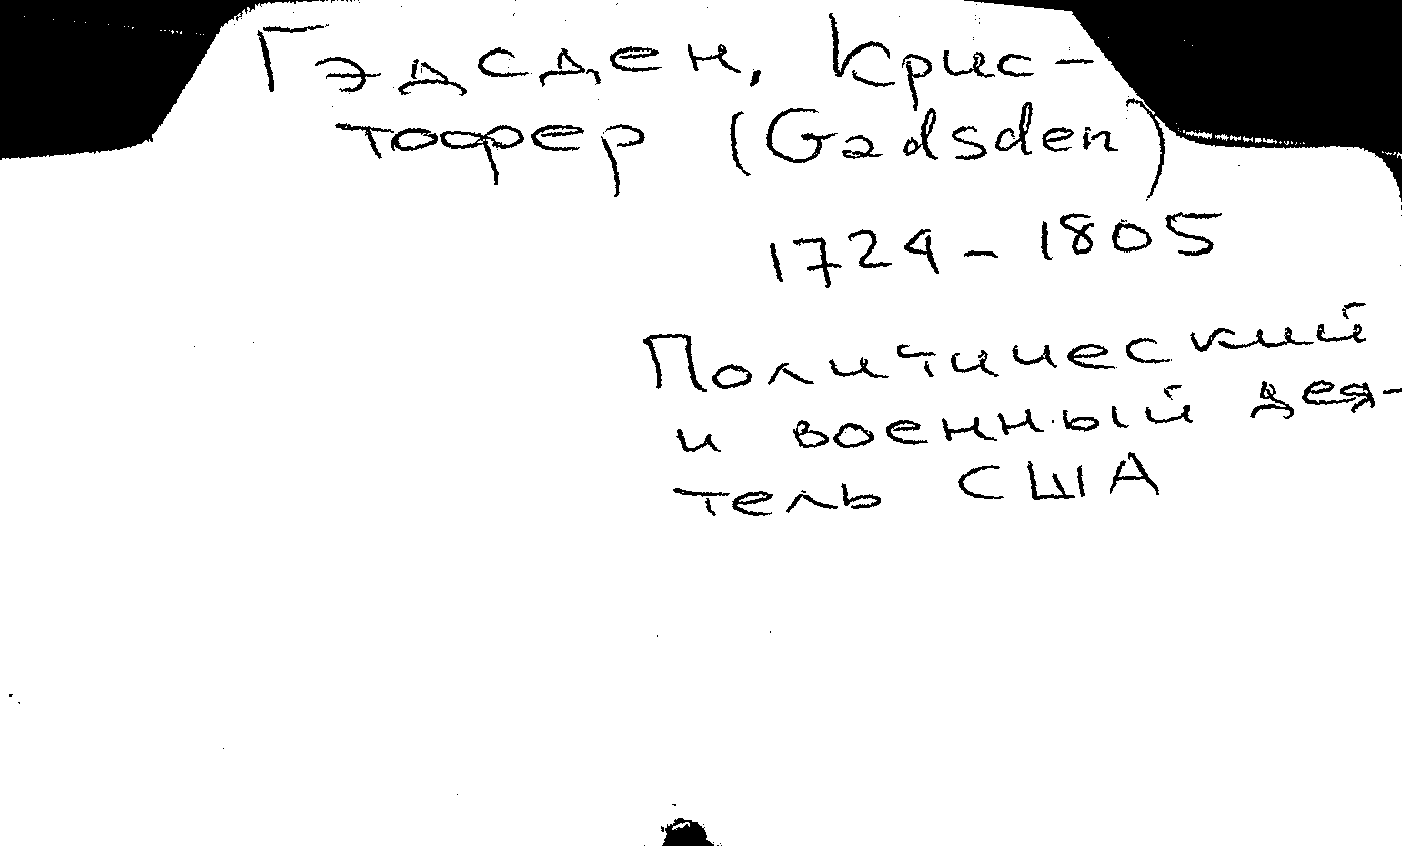 Гэдсден, Крис-
тофер (Gadsden)
1724 - 1805
Политический
и военный дея-
тель США